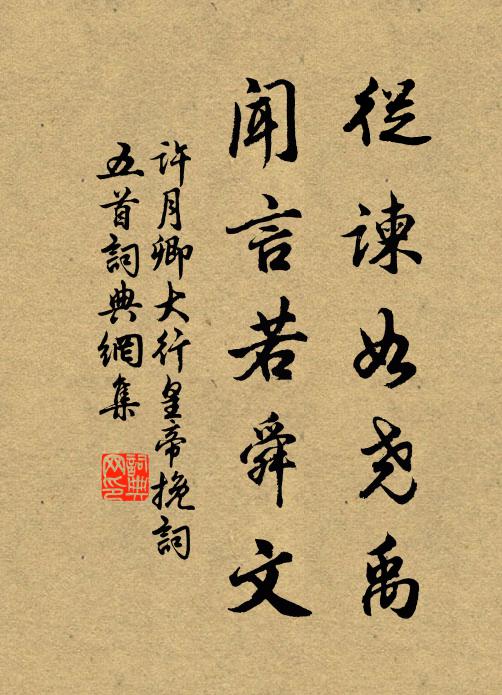 從諫如尧禹
聞言若舜文
許月卿大行皇帝挽詞
五首詞典網集
詞典
网印